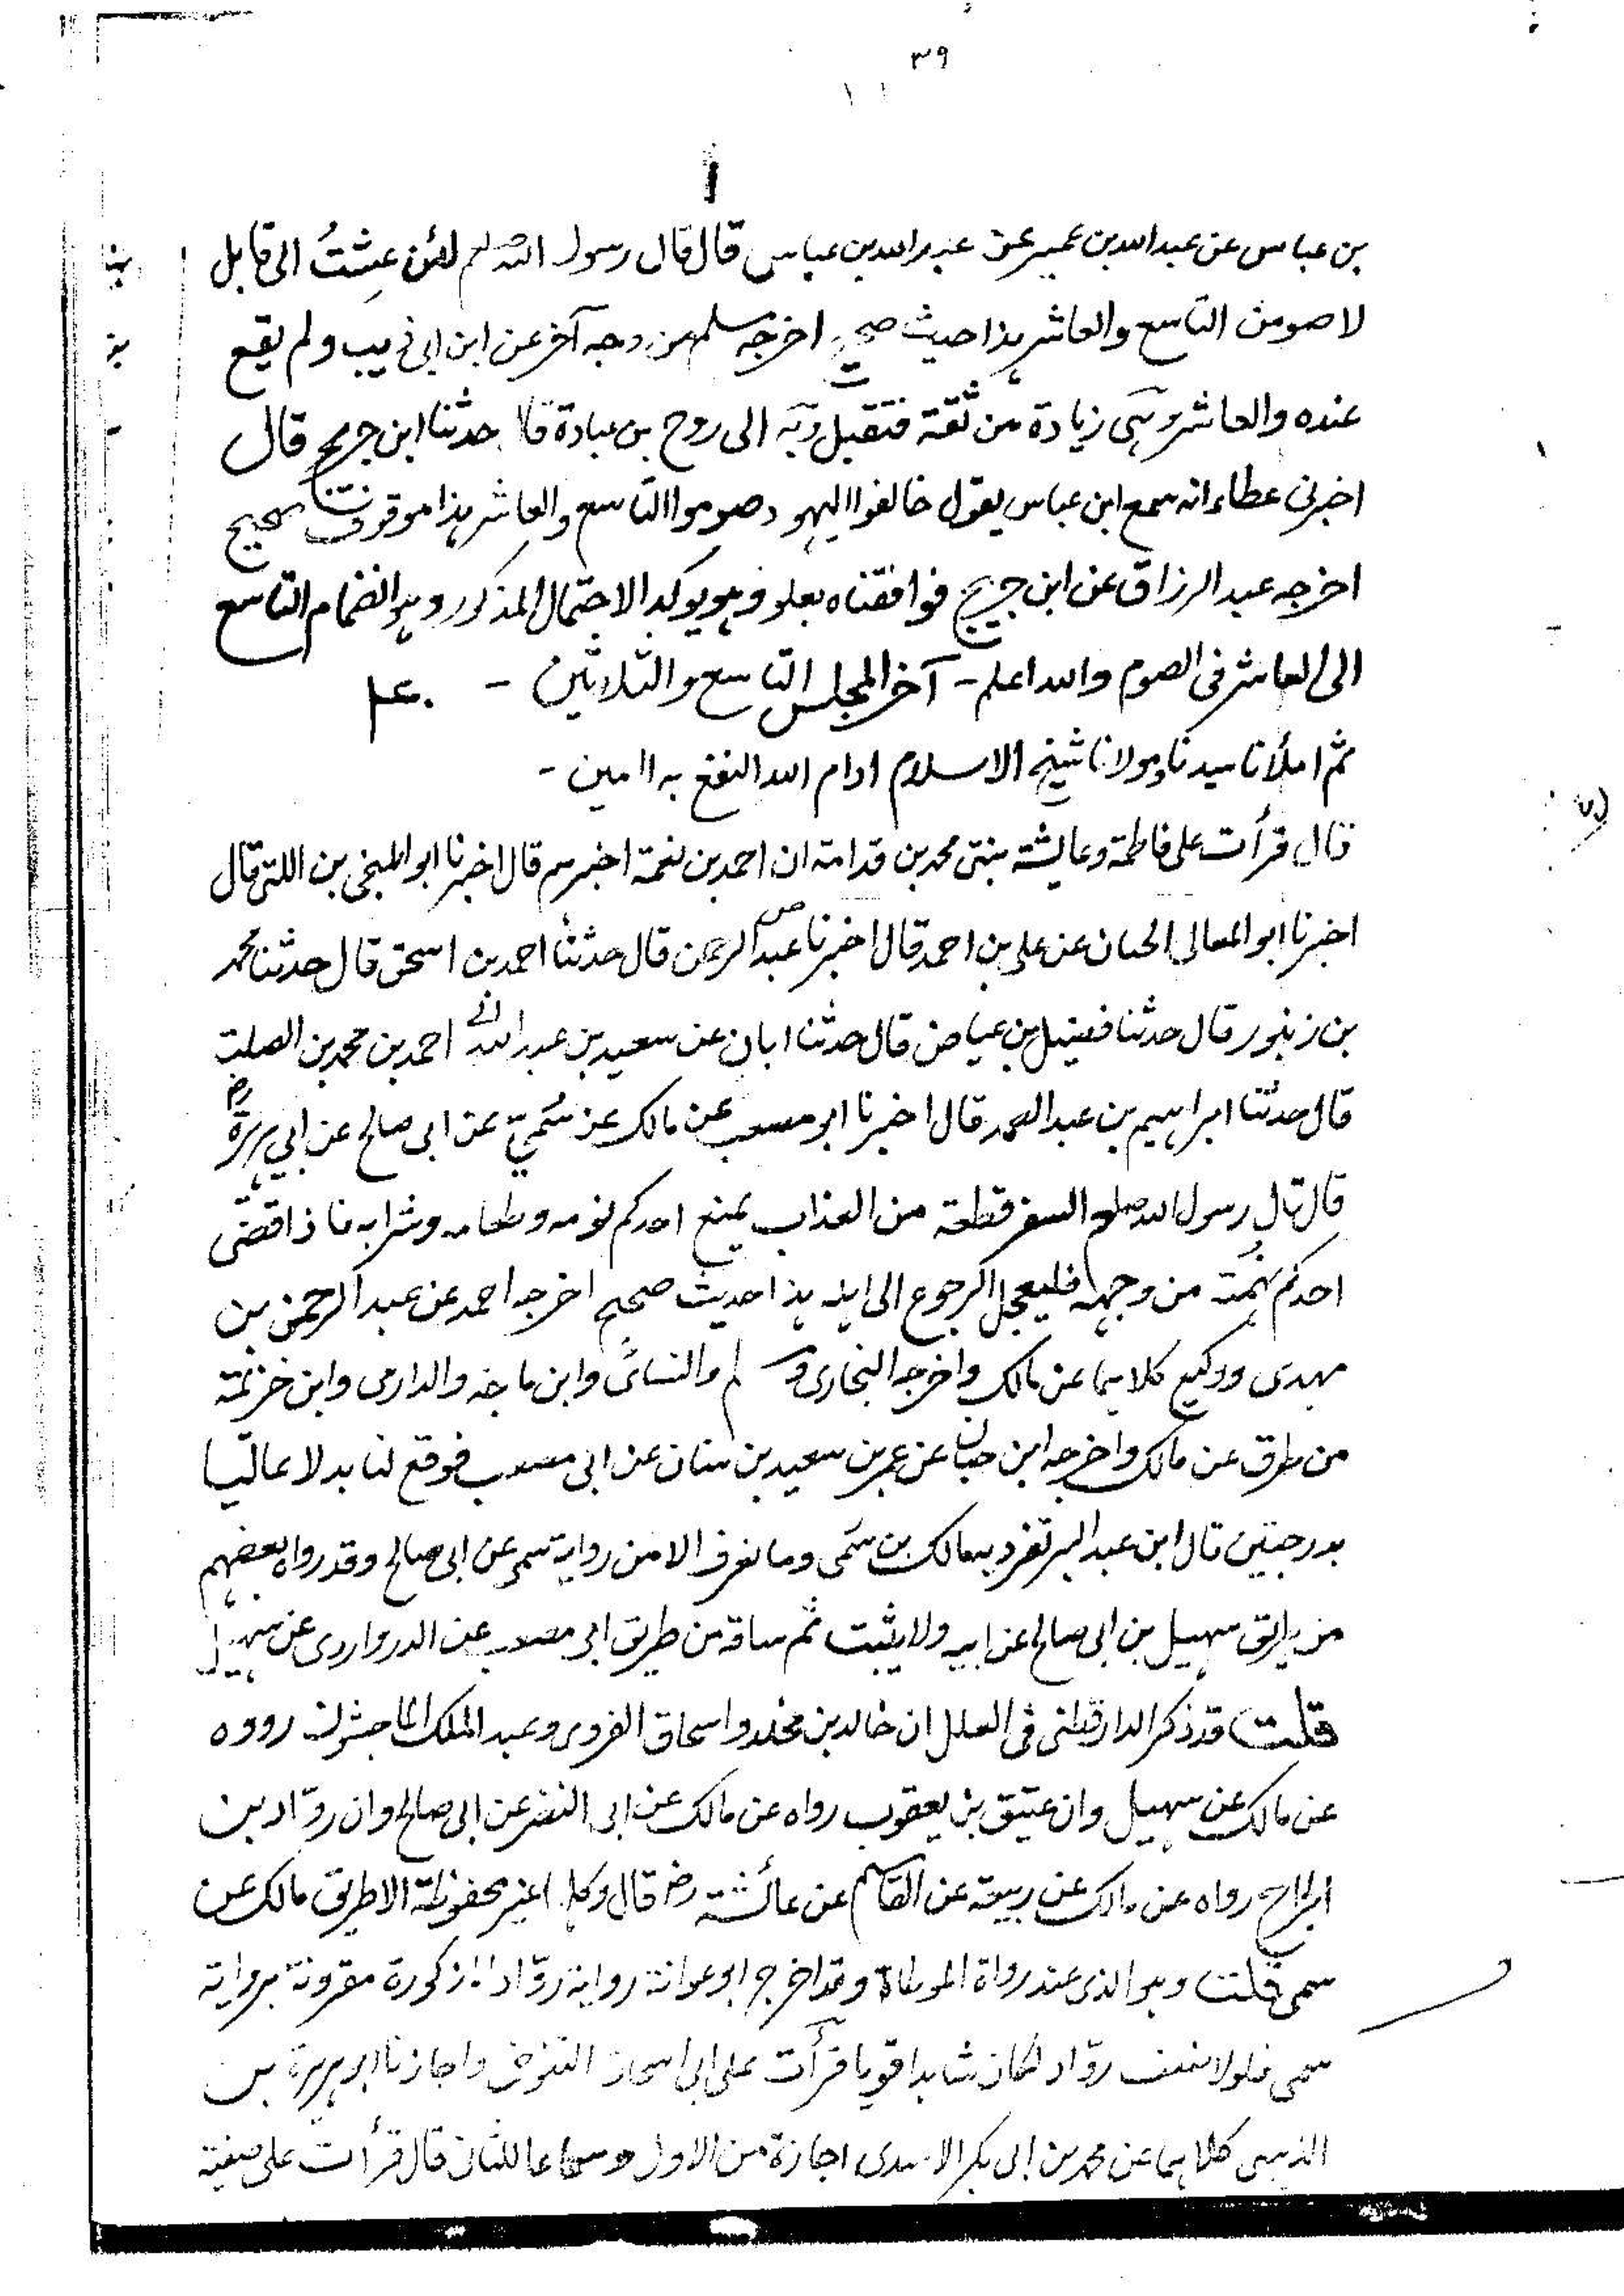 ٣٩
بن عباس عن عبد الله بن عمير عن عبد الله بن عباس قال قال رسول الله لئن عشتُ الى قابل
لاصومن التاسع والعاشر هذا حديث صحيح اخرجه مسلم من وجه آخر عن ابن ابي ذيب ولم يقع
عنده والعاشر وهي زيادة من ثقة فتقبل وبه الى روح بن عبادة قال حدثنا ابن جريج قال
اخبرنى عطاء انه سمع ابن عباس يقول خالفوا اليهود وصوموا التاسع والعاشر هذا موقوف صحيح
اخرجه عبد الرزاق عن ابن جريج فوافقناه بعلو وهو يوكد الاحتمال المذكور وهو انضمام التاسع
الى العاشر فى الصوم والله اعلم - آخر المجلس التاسع والثلاثين -
ثم املأنا سيدنا ومولانا شيخ الاسلام ادام الله النفع به اامين -
قال قرأت على فاطمة وعايشة بنتى محمد بن قدامة ان احمد بن نعمة اخبرهم قال اخبرنا ابو المنجى بن اللتى قال
اخبرنا ابو المعالى الحسان عن على بن احمد قال اخبرنا عبد الرحمن قال حدثنا احمد بن اسحق قال حدثنا محمد
بن زنبور قال حدثنا فضيل بن عياض قال حدثنا ابان عن سعيد بن عبد الله احمد بن محمد بن الصلت
قال حدثنا ابراهيم بن عبد الصمد قال اخبرنا ابو مصعب عن مالك عن سُميّ عن ابى صالح عن ابي هريرة رض
قال قال رسول الله صلعم السفر قطعة من العذاب يمنع احدكم نومه وطعامه وشرابه فاذا قضى
احدكم نهمته من وجهه فليعجل الرجوع الى اهله هذا حديث صحيح اخرجه احمد عن عبد الرحمن بن
مهدى ووكيع كلاهما عن مالك واخرجه البخارى ومسلم والنسائى وابن ماجه والدارمى وابن خزيمة
من طرق عن مالك واخرجه ابن حبان عن عمر بن سعيد بن سنان عن ابى مصعب فوقع لنا بدلا عاليا
بدرجتين قال ابن عبد البر تفرد به مالك بن سمى وما نعرف الا من رواية سمى عن ابى صالح وقد رواه بعضهم
من طريق سهيل بن ابى صالح عن ابيه ولا يثبت ثم ساقه من طريق ابى مصعب عن الدرواردى عن سهيل
قلت قد ذكر الدارقطنى فى العلل ان خالد بن مخلد واسحاق الفروى وعبد الملك الماجشون رووه
عن مالك عن سهيل وان عتيق بن يعقوب رواه عن مالك عن ابى النضر عن ابى صالح وان روّاد بن
الجراح رواه عن مالك عن ربيعة عن القاسم عن عائشة رض قال وكلها غير محفوظة الا طريق مالك عن
سمى قلت وهو الذى عند رواة الموطاة وقد اخرج ابو عوانة رواية روّاد المذكورة مقرونة برواية
سمى فلولا ضعف روّاد لكان شاهدا قويا قرأت على ابى اسحاق التنوخى واجازنا ابو هريرة بن
الذهبى كلاهما عن محمد بن ابى بكر الاسدى اجازة من الاول وسماعا للثانى قال قرأت على صفية